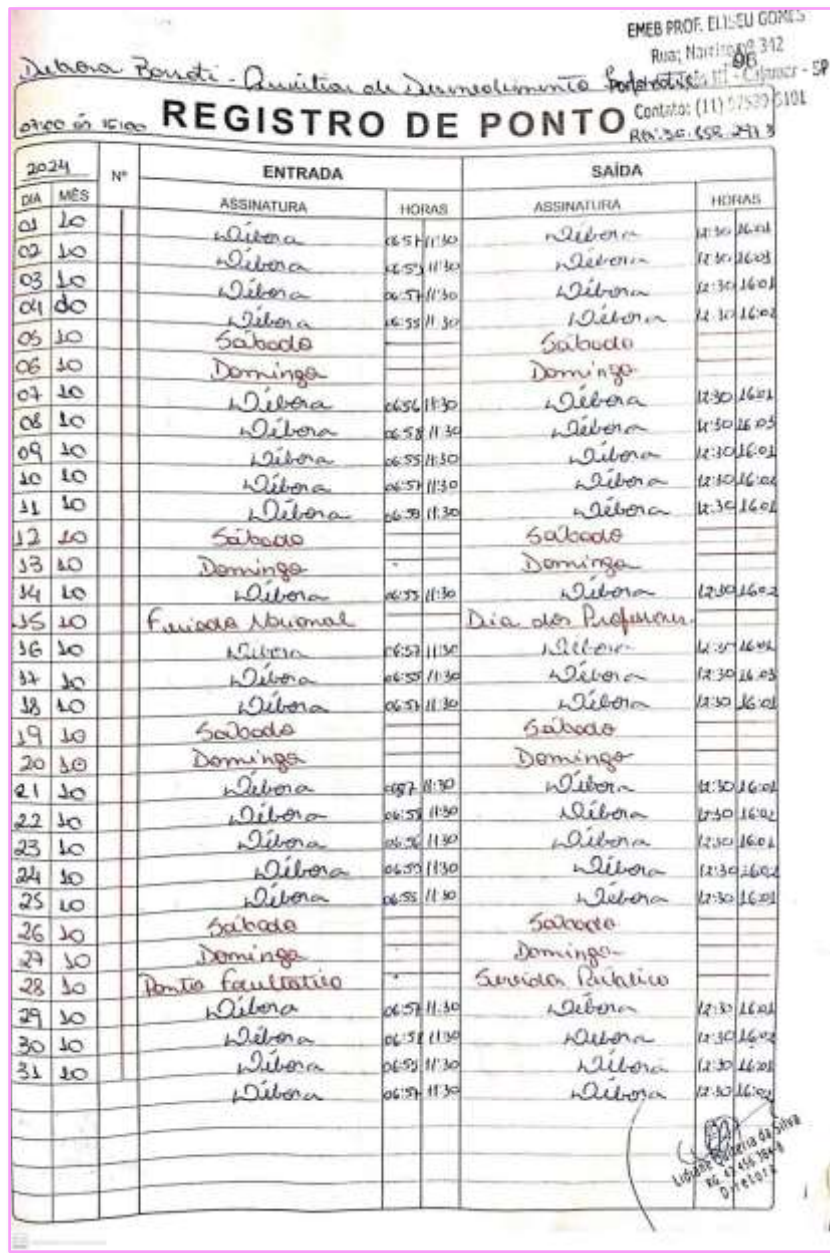 EMEB PROF. ELISEU GOMES
Rua: Narciso nº 312
Contato: (11) 97529 5101
Débora - Auxiliar de Desenvolvimento
07:00 às 16:00 REGISTRO DE PONTO
2024 Nº ENTRADA SAÍDA
DIA MÊS ASSINATURA HORAS ASSINATURA HORAS
01 10 Débora 06:57 11:30 Débora 12:30 16:01
02 10 Débora 11:30 Débora 12:30 16:03
03 10 Débora 06:57 11:30 Débora 12:30 16:01
04 10 Débora 06:55 11:30 Débora 12:30 16:02
05 10 Sábado Sábado
06 10 Domingo Domingo
07 10 Débora 06:56 11:30 Débora 12:30 16:01
08 10 Débora 06:58 11:30 Débora 12:30 16:03
09 10 Débora 06:55 11:30 Débora 12:30 16:01
10 10 Débora 06:57 11:30 Débora 12:30 16:02
11 10 Débora 11:30 Débora 12:30 16:01
12 10 Sábado Sábado
13 10 Domingo Domingo
14 10 Débora 06:55 11:30 Débora 12:30 16:02
15 10 Feriado Nacional Dia dos Professores.
16 10 Débora 06:57 11:30 Débora 12:30
17 10 Débora 06:55 11:30 Débora 12:30 16:03
18 10 Débora 06:57 11:30 Débora 12:30 16:01
19 10 Sábado Sábado
20 10 Domingo Domingo
21 10 Débora 0657 11:30 Débora 12:30 16:01
22 10 Débora 11:30 Débora 12:30 16:02
23 10 Débora 06:56 11:30 Débora 12:30 16:01
24 10 Débora 11:30 Débora 12:30 16:02
25 10 Débora 06:55 11:30 Débora 12:30 16:01
26 10 Sábado Sábado
27 10 Domingo Domingo
28 10 Ponto Facultativo Servidor Público
29 10 Débora 06:57 11:30 Débora 12:30 16:01
30 10 Débora 11:30 Débora 12:30 16:02
31 10 Débora 11:30 Débora 12:30 16:01
Débora 06:57 11:30 Débora 12:30 16:02
Lidiane da Silva
Diretora